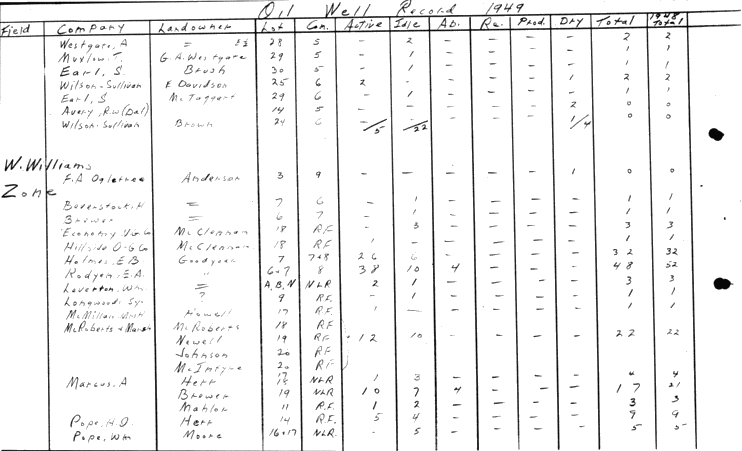 Oil Well Record 1949
Field Company Landowner Lot Con. Active Idle Ab. Re. Prod. Dry Total 1948 Total
Westgate, A " 28 5 - 2 - - - - 2 2
Muxlow, T. G. A. Westgate 29 5 - 1 - - - - 1 1
Earl, S. Brush 30 5 - 1 - - - - 1 1
Wilson-Sullivan E Davidson 25 6 2 - - - - 1 2 2
Earl, S McTaggart 29 6 - 1 - - - - 1 1
Avery, R.W (Dal) 14 5 - - - - - 2 0 0
Wilson-Sullivan Brown 24 6 - - - - - 1 0 0
/5 /22 /4
W. Williams
Zone
F.A Ogletree Anderson 3 9 - - - - - 1 0 0
Beverstock, H = 7 6 - 1 - - - - 1 1
Brewer = 6 7 - 1 - - - - 1 1
Economy O-G Co McClennan 18 R.F - 3 - - - - 3 3
Hillside O-G Co McClennan 18 R.F 1 - - - - - 1 1
Holmes, E.B. Goodyear 7 7+8 26 6 - - - - 32 32
Rodyer, E.A. " 6+7 8 38 10 4 - - - 48 52
Loverton, Wm = A, B, N NLR 2 1 - - - - 3 3
Longwoods Sy. ? 9 R.F. - 1 - - - - 1 1
McMillan Howell 17 R.F. 1 - - - - - 1 1
McRoberts & Marsh McRoberts 18 R.F
Newell 19 RF 12 10 - - - - 22 22
Johnson 20 RF
McIntyre 20 RF
Marcus, A Herr 17 18 NLR 1 3 - - - - 4 4
Brower 19 NLR 10 7 4 - - - 17 21
Mahlon 11 R.F. 1 2 - - - - 3 3
Pope, H.D. Herr 14 R.F. 5 4 - - - - 9 9
Pope, Wm Moore 16+17 NLR. - 5 - - - - 5 5